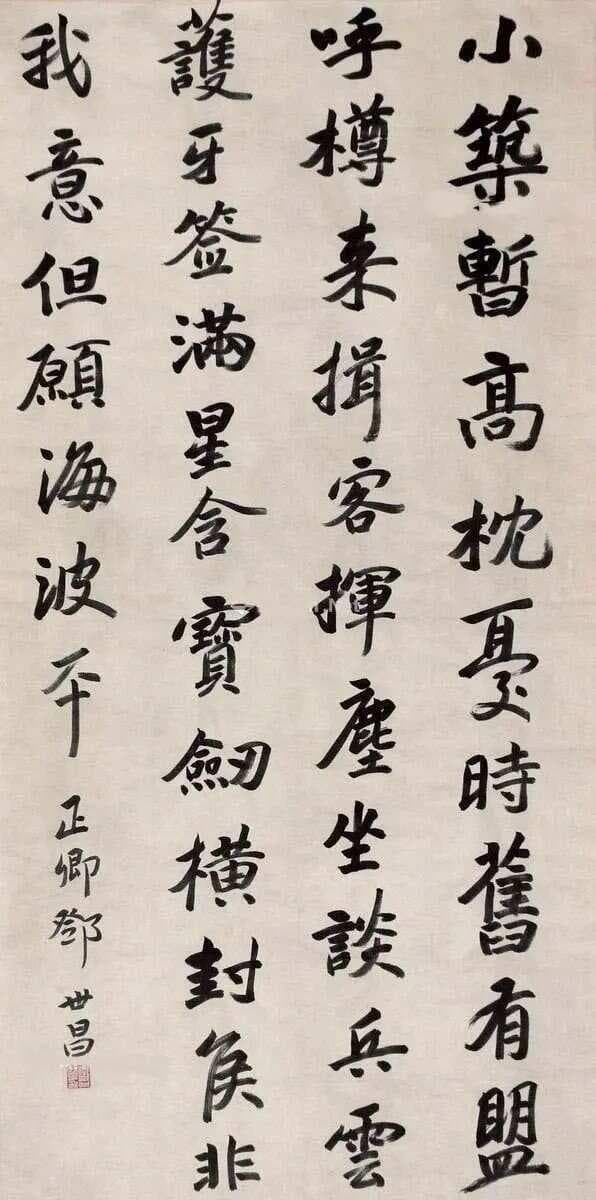 小築暫高枕憂時舊有盟
呼樽来揖客揮塵坐談兵雲
護牙签滿星含寶劒橫封侯非
我意但願海波平
正卿鄧世昌